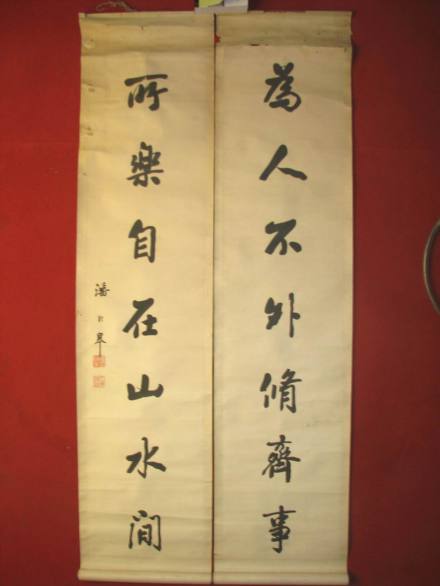 為人不外脩齊事
所樂自在山水間
潘齡皋